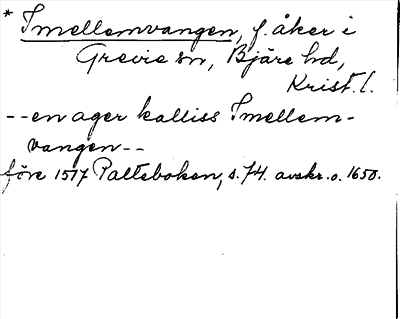 * Imellemvangen, f. åker i
Grevie sn, Bjäre hd,
Krist. l.
--en ager kalliss Imellem-
vangen--
före 1517 Palteboken, s. 74. avskr. o. 1650.